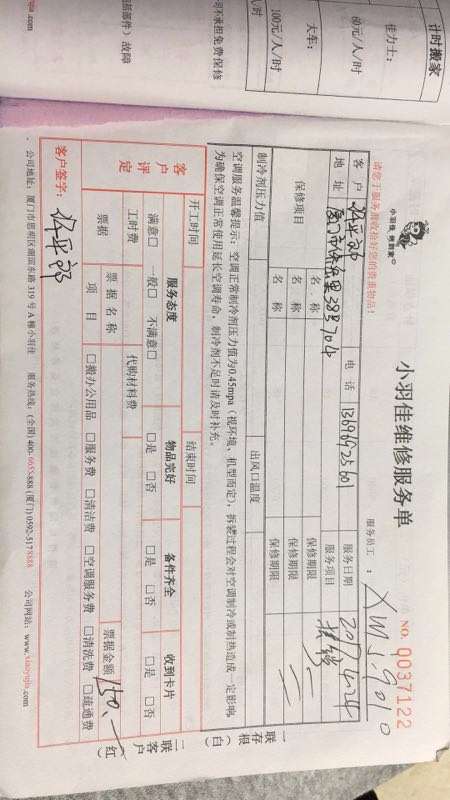 计时搬家
佳力士：
大车：
80元/人/时
100元/人/时
司不承担免费保修
括部件）故障
.com
请您于服务前收拾好您的贵重物品！
小羽佳 便利家
小羽佳维修服务单
服务员工：XMJ.9010
NO. 0037122
客户
电话 13696925501
服务日期 2017.4.24
地址
38号704
服务项目
保修项目
名称
保修期限
名称
保修期限
名称
保修期限
制冷剂压力值
出风口温度
空调服务温馨提示：空调正常制冷剂压力值为0.45mpa（视环境、机型而定），拆装过程会对空调制冷或制热造成一定影响,
为确保空调正常使用延长空调寿命，制冷剂不足时请及时补充。
开工时间
结束时间
客户评定
服务态度
物品完好
备件齐全
收到卡片
满意□ 一般□ 不满意□
□是 □否
□是 □否
□是 □否
工时费
代购材料费
票据
票据名称
票据金额 150.—
项目
□搬办公用品 □服务费 □清洁费 □空调服务费 □清洗费 □疏通费
客户签字：
公司地址：厦门市思明区湖滨东路 319 号 A 栋小羽佳
服务热线：(全国) 400-6655888 (厦门) 0592-5178888
公司网站：www.xiaoyujia.com
一联存根（白）
二联客户（红）